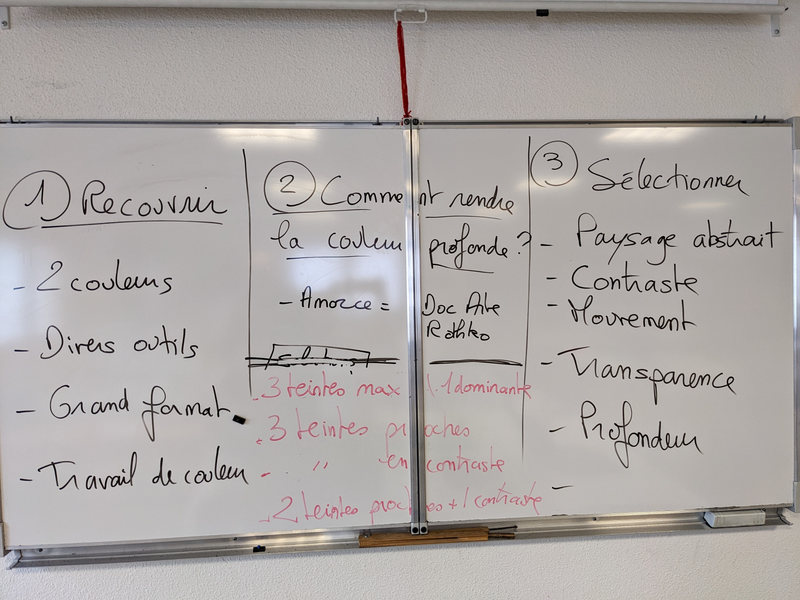 1 Recouvrir
- 2 couleurs
- Divers outils
- Grand format
- Travail de couleur
2 Comment rendre
la couleur profonde ?
- Amorce = Doc Arte
Rothko
- 3 teintes max \ 1 dominante
- 3 teintes proches
- " en contraste
- 2 teintes proches + 1 contraste
3 Sélectionner
- Paysage abstrait
- Contraste
- Mouvement
- Transparence
- Profondeur
-